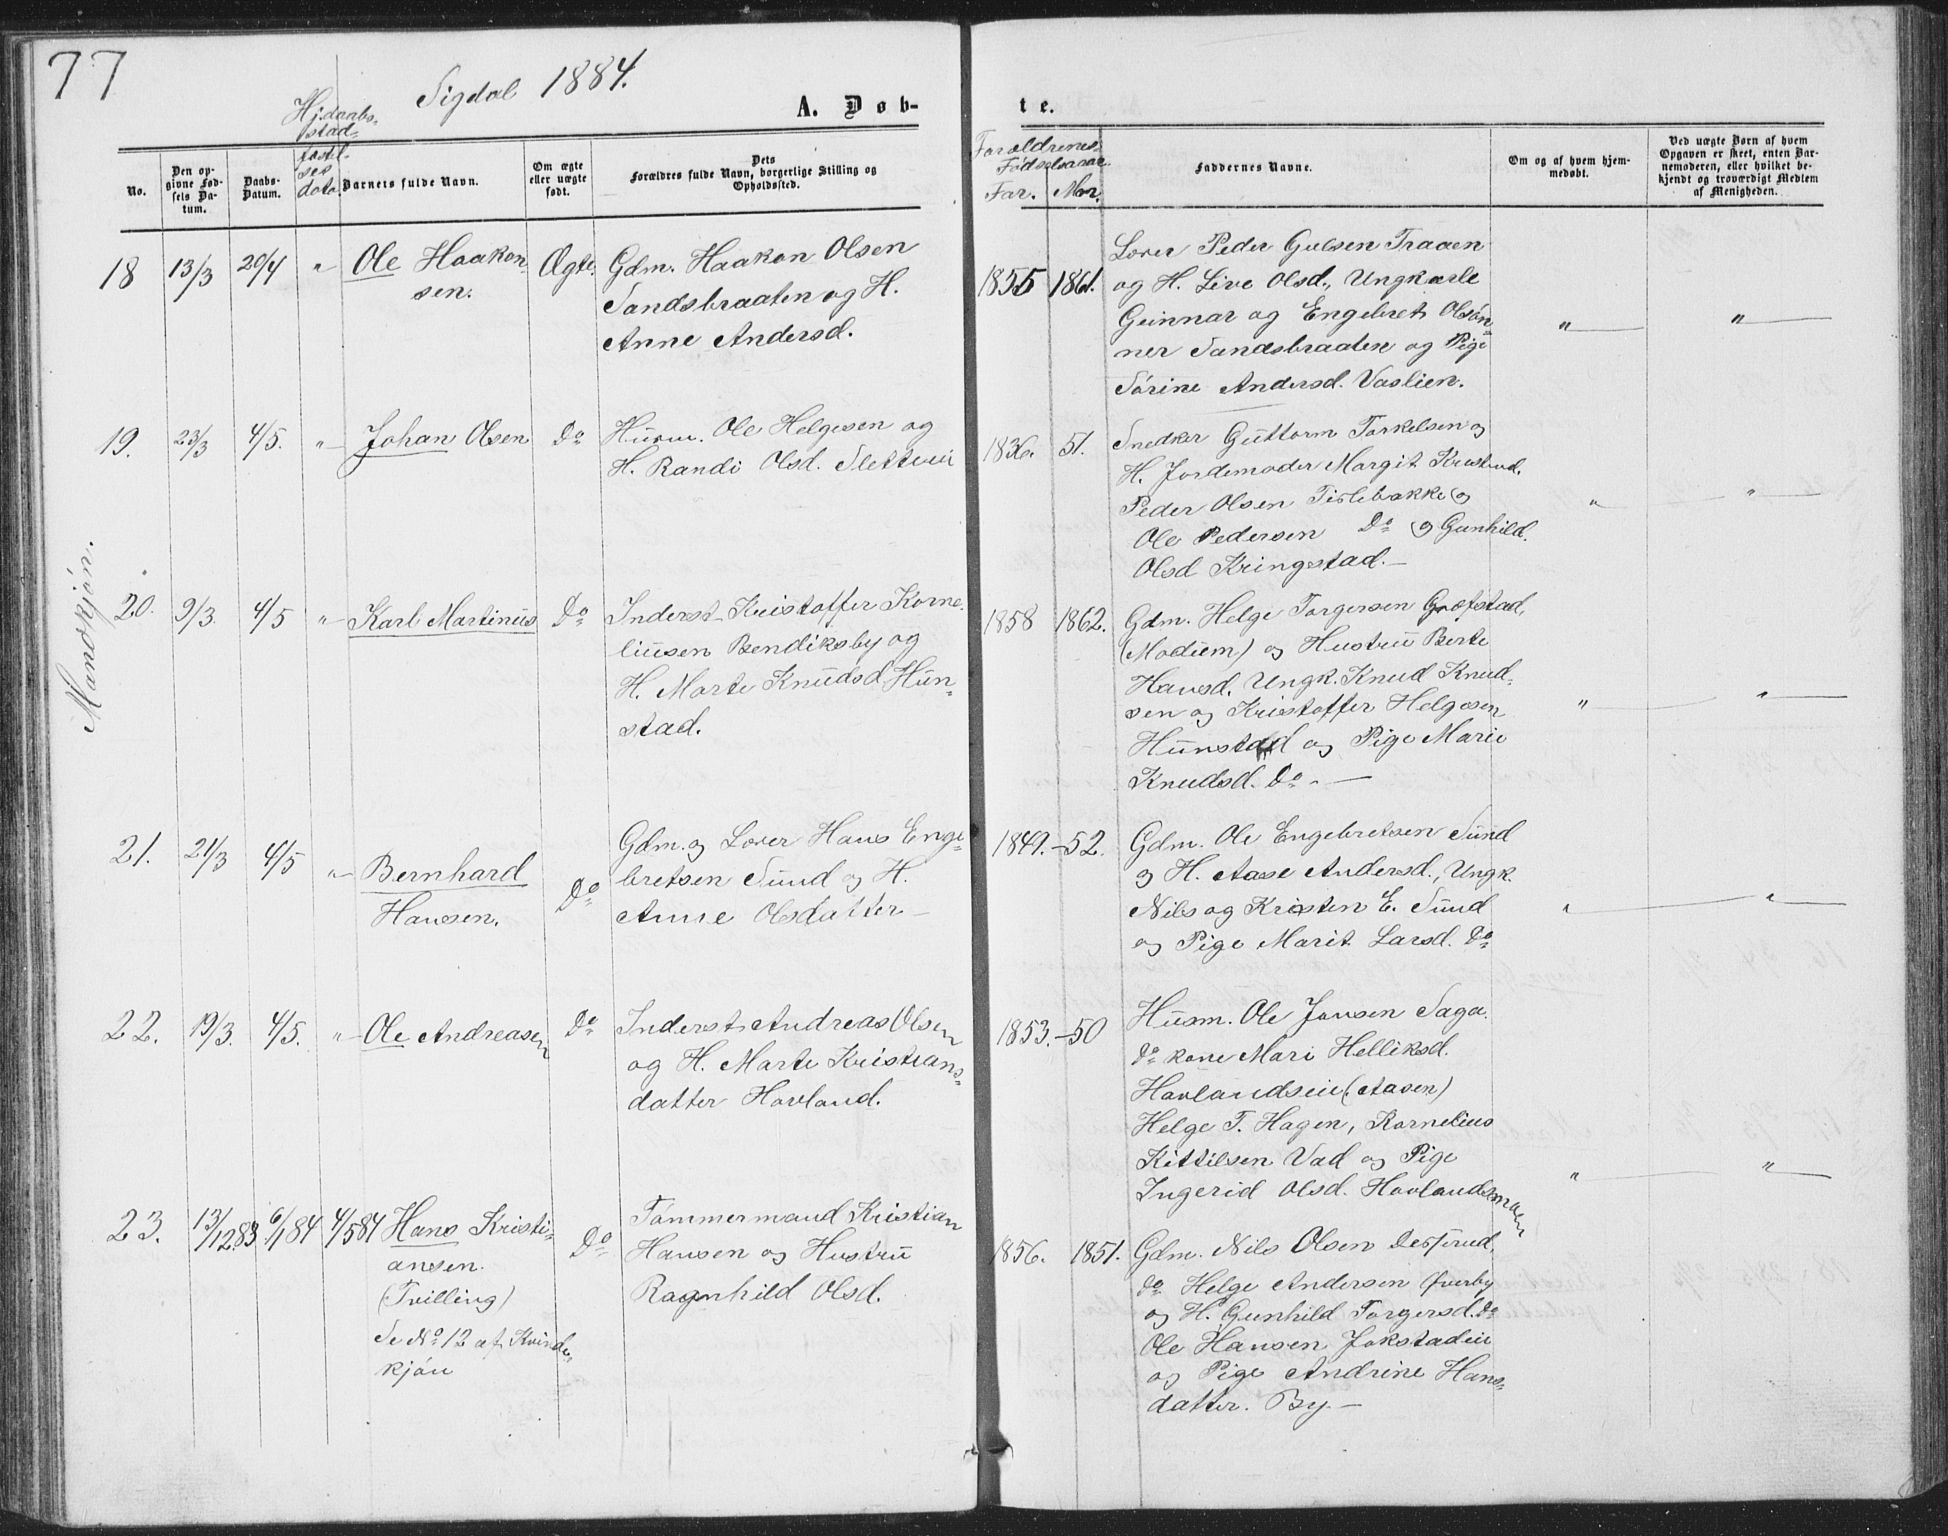 77
Sigdal 1884.
A. Døb-
te.
Hj.daabs-
stad-
fæstel-
ses
dato.
No.
Den op-
givne Fød-
sels Da-
tum.
Daabs-
Datum.
Barnets fulde Navn.
Om ægte
eller uægte
født.
Dets
Forældres fulde Navn, borgerlige Stilling og
Opholdssted.
Forældrenes
Fødselsaar.
Far. Mor.
Faddernes Navne.
Om og af hvem hjem-
medøbt.
Ved uægte Børn af hvem
Opgaven er skeet, enten Bar-
nemoderen, eller hvilket be-
kjendt og troværdigt Medlem
af Menigheden.
Mandkjön.
18 13/3 20/4 " Ole Haakon-
sen.
Ægte.
Gdm. Haakon Olsen
Sandsbraaten og H.
Anne Andersd.
1855 1861.
Lærer Peder Gulsen Traaen
og H. Live Olsd., Ungkarle
Gunnar og Engebret Olsön-
ner Sandsbraaten og Pige
Sörine Andersd. Vaslien.
" "
19. 23/3 4/5. " Johan Olsen Do
Husm. Ole Helgesen og
H. Randi Olsd. Sletteni
1836. 51.
Snedker Guttorm Torkelsen og
H. Jordemoder Margit Krostrud.
Peder Olsen Tislebakke og
Ole Pedersen Do og Gunhild.
Olsd Kringstad.-
" "
20. 9/3 4/5 " Karl Martinus Do
Inderst Kristoffer Korne-
liusen Bendiksby og
H. Marte Knudsd. Hun-
stad.
1858 1862.
Gdm. Helge Torgersen Græfstad,
(Modum) og Hustru Berte
Hansd. Ungk. Knud Knud-
sen og Kristoffer Helgesen
Hunstad og Pige Marie
Knudsd. Do.-
" "
21. 21/3 4/5 " Bernhard
Hansen.
Do
Gdm. og Lærer Hans Enge-
bretsen Sund og H.
Anne Olsdatter-
1849.-52.
Gdm. Ole Engebretsen Sund
og H. Aase Andersd., Ungk.
Nils og Kristen E. Sund
og Pige Marit Larsd. Do
" "
22. 19/3. 4/5. " Ole Andreasen Do
Inderst Andreas Olsen
og H. Marte Kristians-
datter Hovland.
1853.-50
Husm. Ole Jonsen Saga.
Do kone Mari Helliksd.
Hovlandseie (Aasen)
Helge T. Hagen, Kornelius
Kittilsen Vad og Pige
Ingerid Olsd. Hovlandsmoen
" "
23. 13/12 83 6/1 84 4/5 84 Hans Kristi-
ansen.
(Tvilling)
Se No 12 af Kvinde-
kjön
Do
Tömmermand Kristian
Hansen og Hustru
Ragnhild Olsd.
1856. 1851.
Gdm. Nils Olsen Desserud,
Do Helge Andersen Överby
og H. Gunhild Torgersd. Do
Ole Hansen Jokstadeie
og Pige Andrine Hans-
datter. By.-